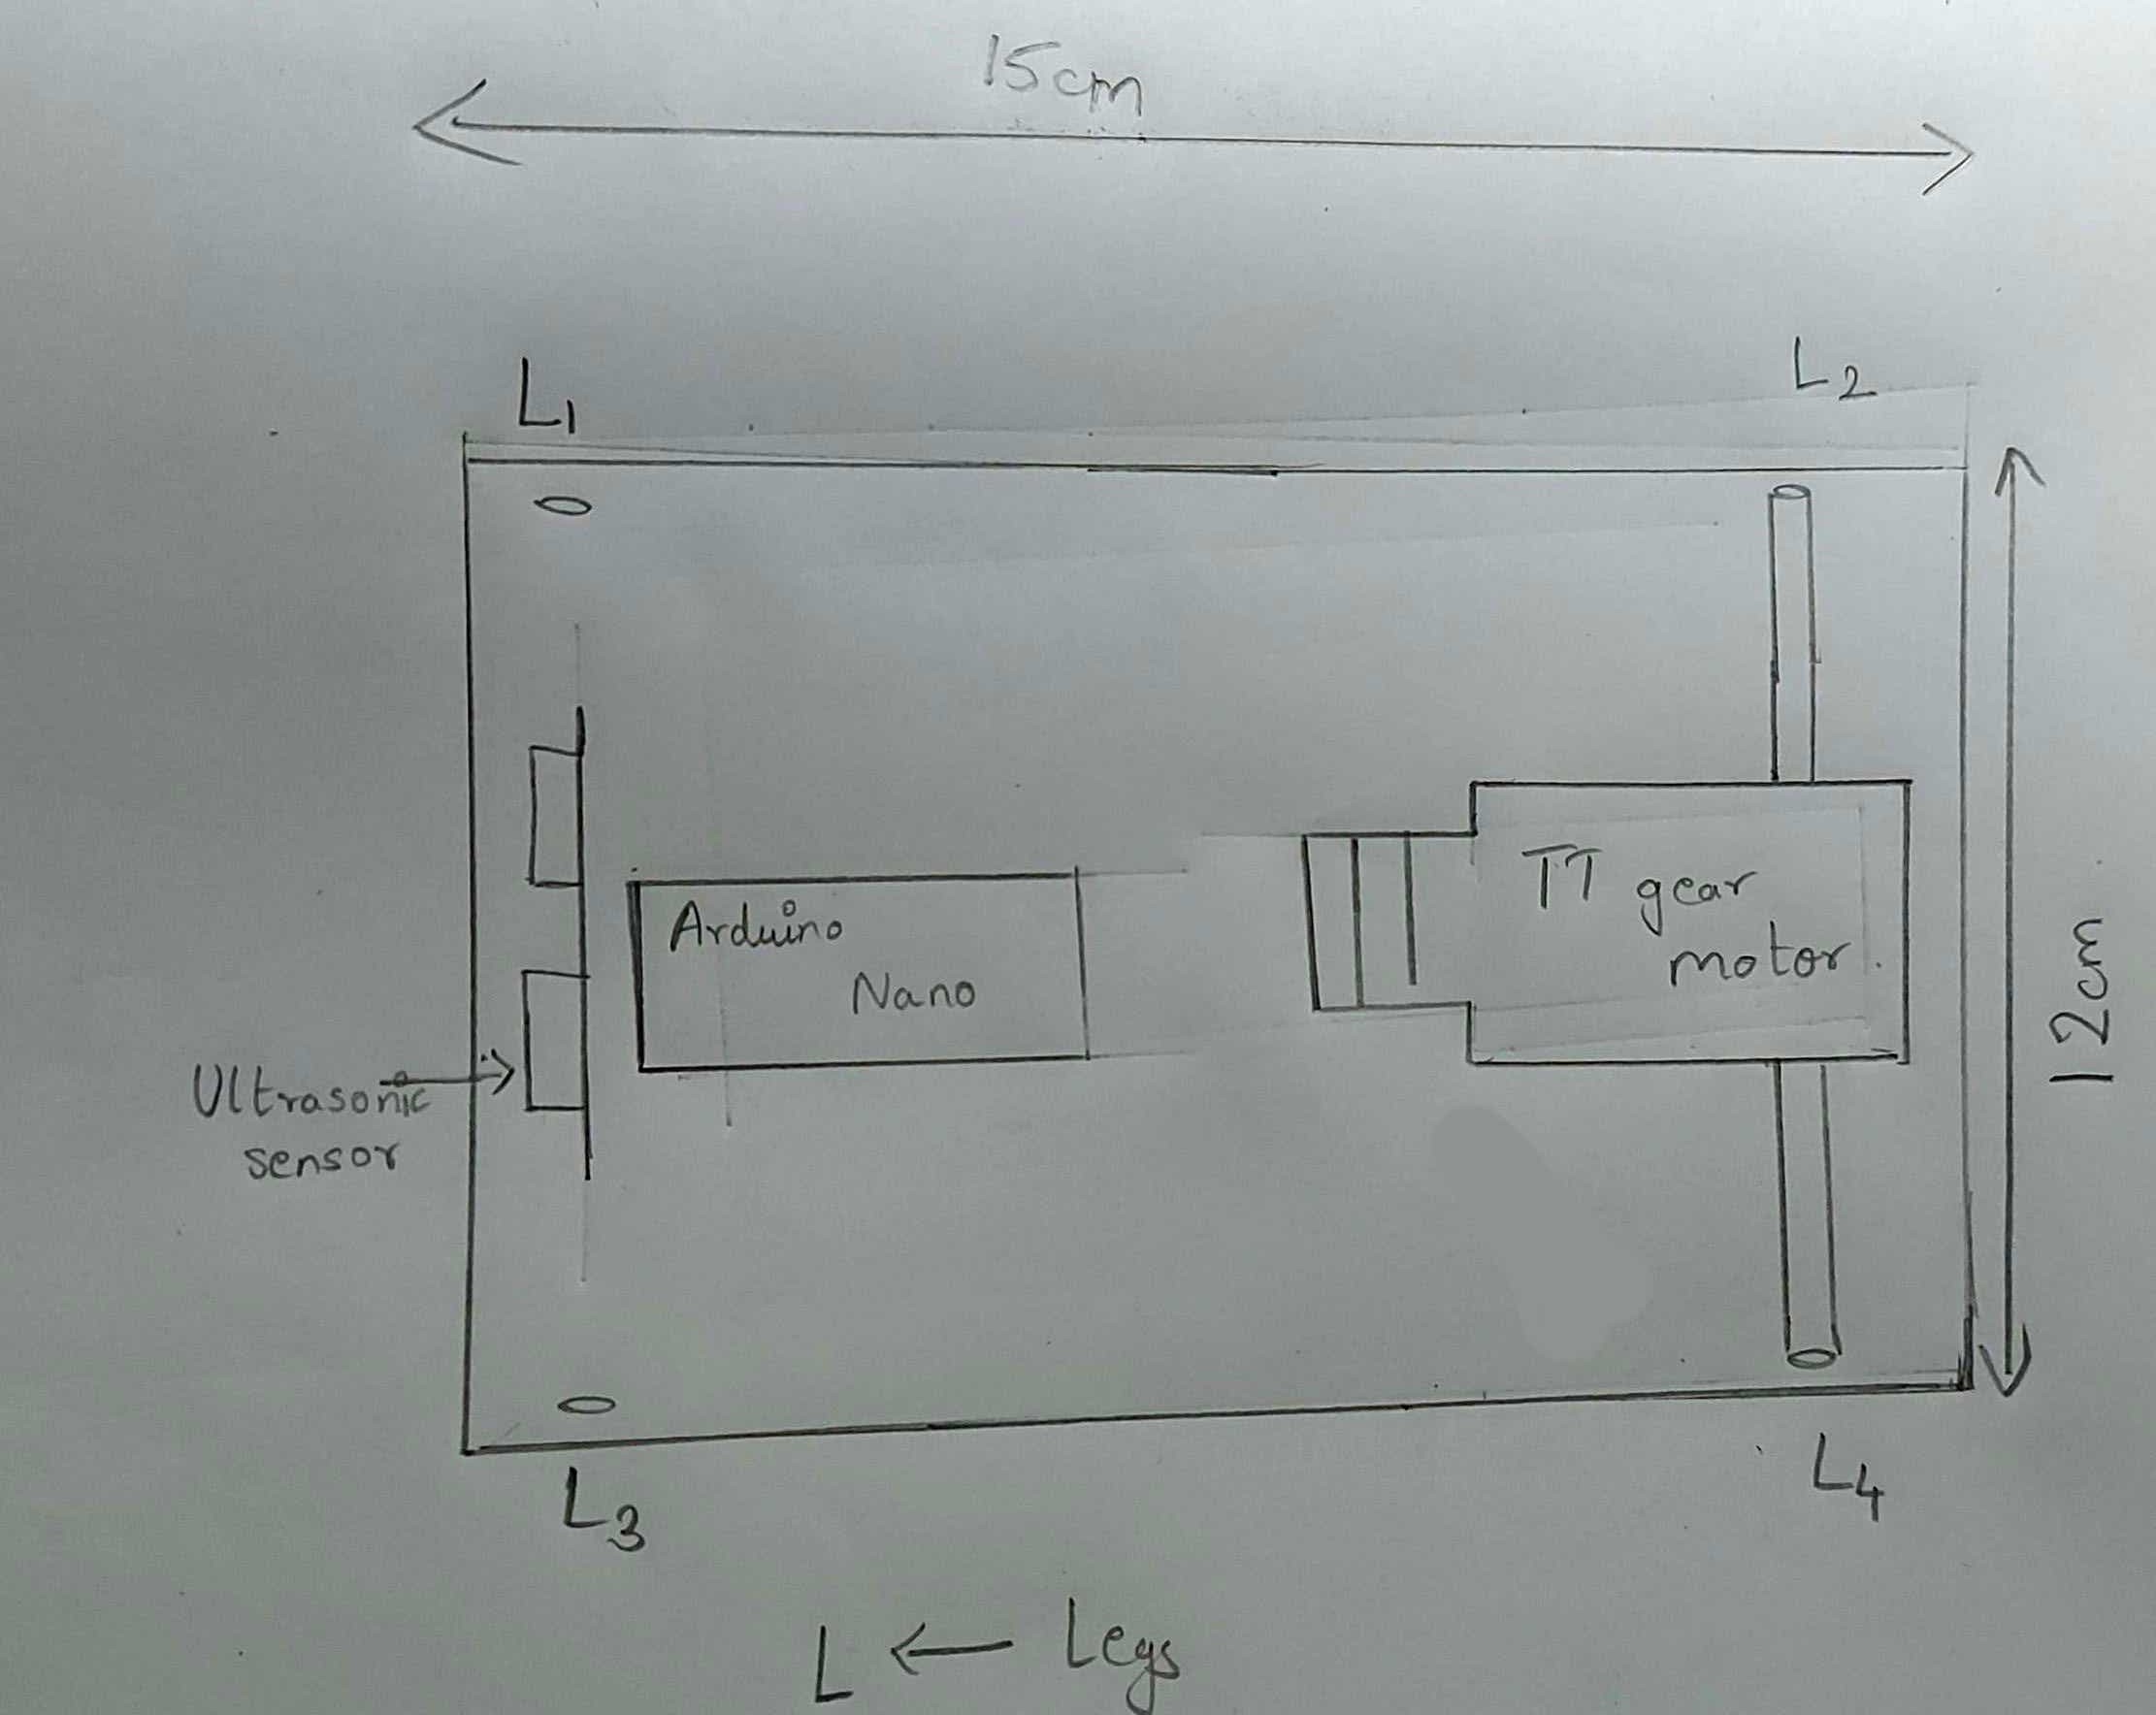 15cm
L1
L2
Arduino
Nano
TT gear
motor.
12cm
Ultrasonic
sensor
L3
L4
L ← Legs